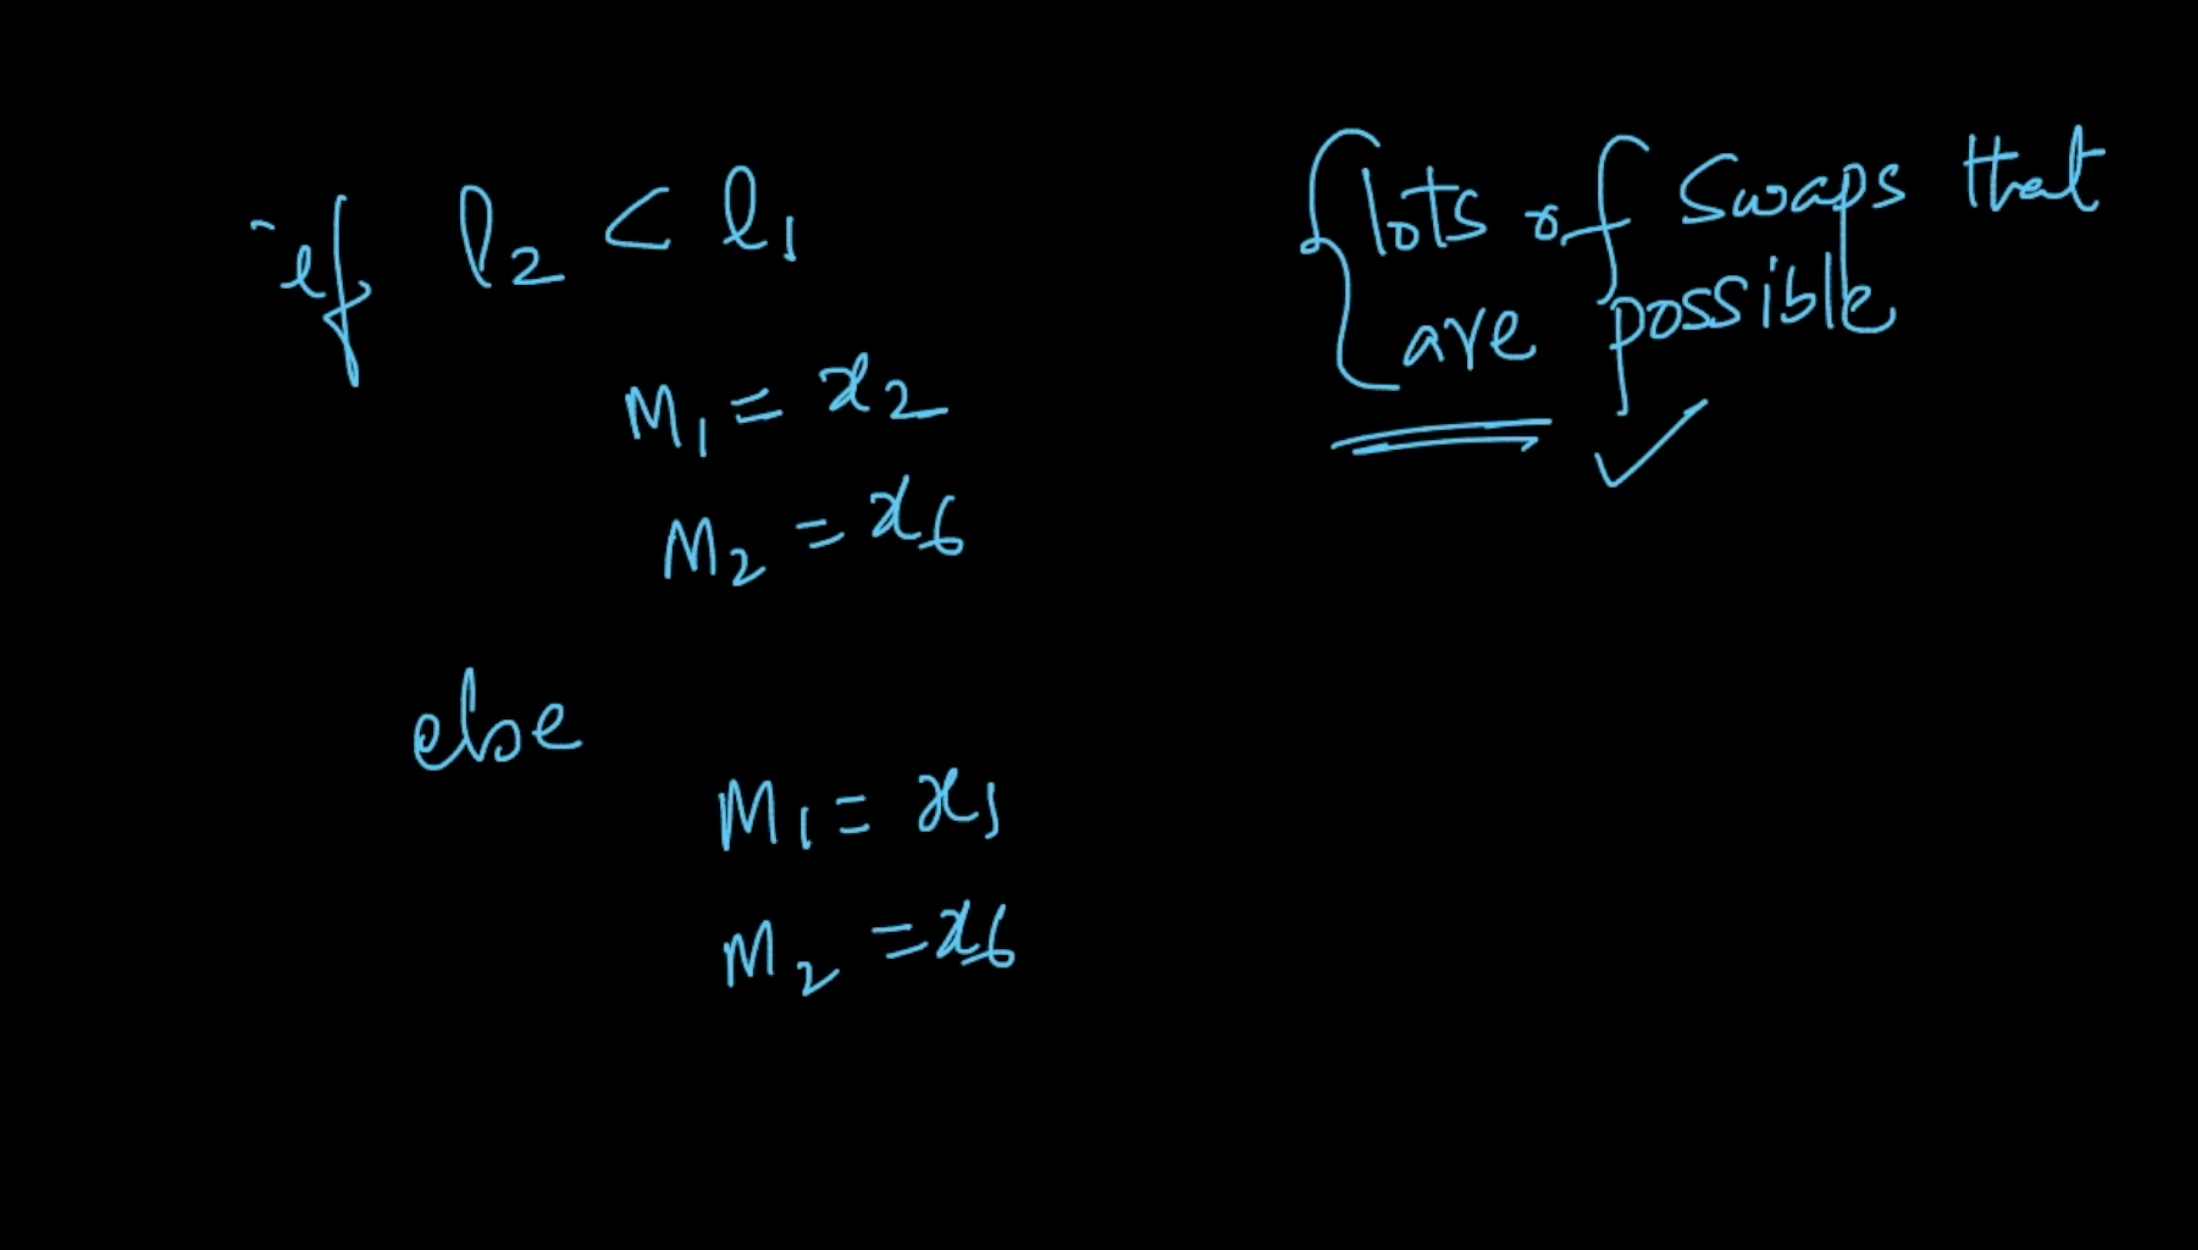 if l₂ < l₁
M₁ = x₂
M₂ = x₆
else
M₁ = x₁
M₂ = x₆
{lots of swaps that
are possible